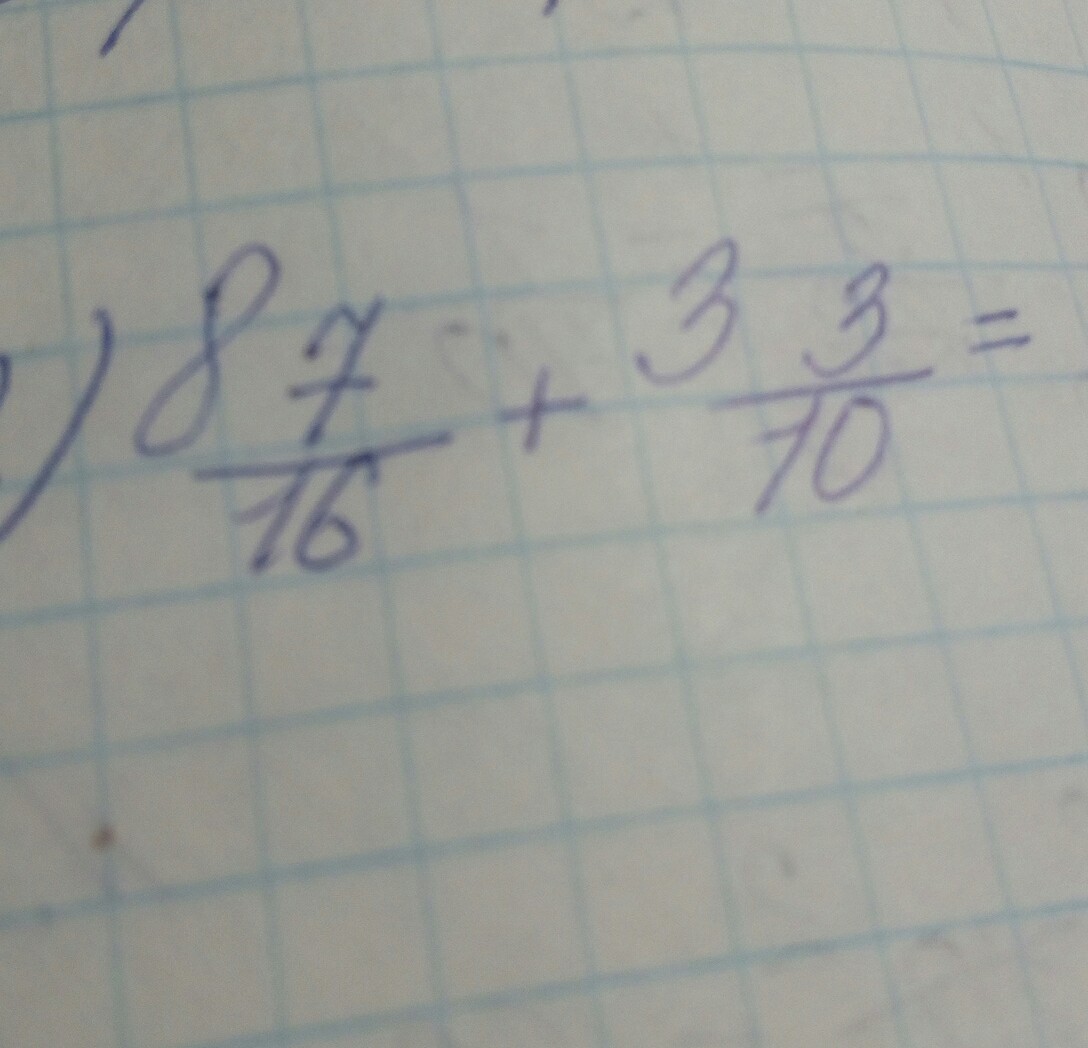 ) 8 7/16 + 3 3/10 =